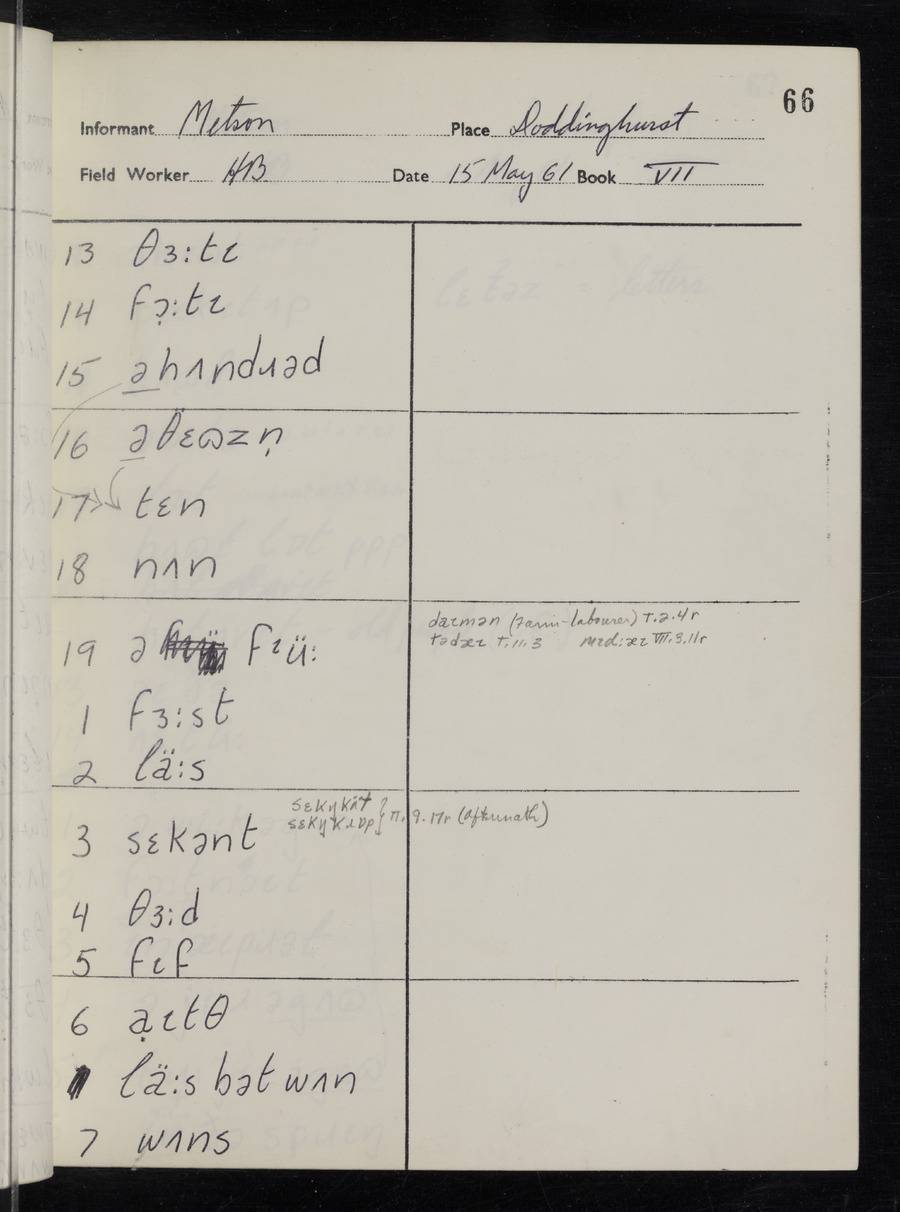 66
Informant Metson Place Doddinghurst
Field Worker HB Date 15 May 61 Book VII
13 θɜ:tɪ
14 fɔ̣:tɪ
15 əhʌndɹəd
16 əθɛɷzṇ
17 tɛn
18 nʌn
19 ə fɪü:
daɪmən (farm-labourer) I.2.4r
tədæɪ I.11.3 mɪd:æɪ VII.3.11r
1 fɜ:st
2 lä:s
sɛkṇkät
sɛkṇkɹɒp } II.9.17r (aftermath)
3 sɛkənt
4 θɜ:d
5 fɪf
6 ạɪtθ
lä:s bət wʌn
7 wʌns